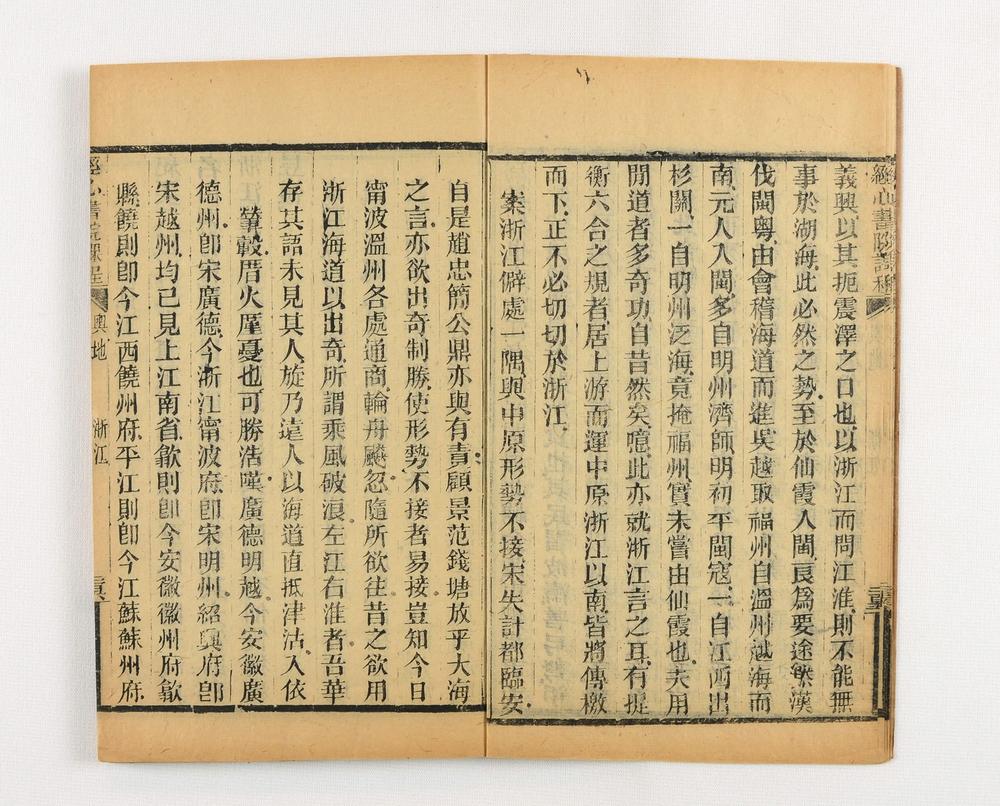 經心書院課程
義興以其扼震澤之口也以浙江而問江淮則不能無
事於湖海此必然之勢至於仙霞入閩良爲要途然漢
伐閩粵由會稽海道而進吳越取福州自溫州越海而
南元人入閩多自明州濟師明初平閩寇一自江西出
杉關一自明州泛海竟掩福州實未嘗由仙霞也夫用
閒道者多奇功自昔然矣噫此亦就浙江言之耳有提
衡六合之規者居上游而運中原浙江以南皆將傳檄
而下正不必切切於浙江
案浙江僻處一隅與中原形勢不接宋失計都臨安
自是趙忠簡公鼎亦與有責顧景范錢塘放乎大海
之言亦欲出奇制勝使形勢不接者易接豈知今日
甯波溫州各處通商輪舟飈忽隨所欲往昔之欲用
浙江海道以出奇所謂乘風破浪左江右淮者吾華
存其語未見其人旋乃遠人以海道直抵津沽入依
輦轂厝火厪憂也可勝浩嘆廣德明越今安徽廣
德州卽宋廣德今浙江甯波府卽宋明州紹興府卽
宋越州均已見上江南省歙則卽今安徽徽州府歙
縣饒則卽今江西饒州府平江則卽今江蘇蘇州府
輿地 浙江